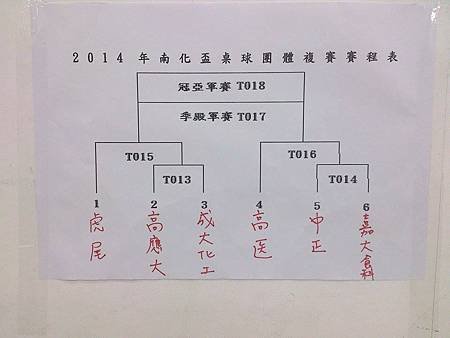 2014年南化盃桌球團體複賽賽程表
冠亞軍賽 T018
季殿軍賽 T017
T015 T016
T013 T014
1 2 3 4 5 6
虎尾
高應大
成大化工
高医
中正
嘉大食科